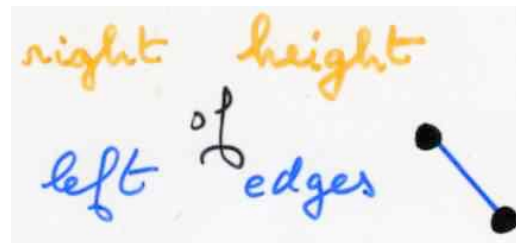 right height
of
left edges